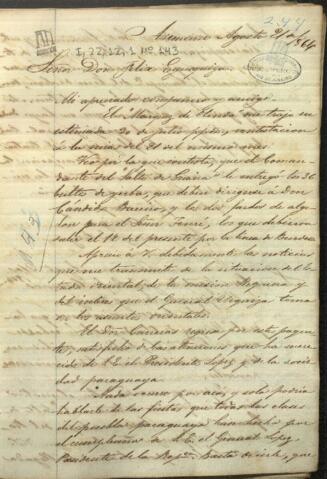 244
Asuncion Agosto 9/ 864
I, 22, 12, 1 Nº 443
Señor Don Felix Egusquiza
Mi apreciado compañero y amigo
El Marques de me trajo su
estimada 20 de julio ppdo, contestacion
de la mia del 21 del mismo mes
Veo por la que contesto, que el Coman-
dante del Salto de Guaira le entregó los 36
bultos de yerba, que deben dirigirse á don
Cándido Bareiro, y los dos fardos de algo-
don para el Señor Ferré, los que debieron
salir el 1º del presente por la linea de Burdeos
Aprecio á V. debidamente las noticias
que me transmite de la situacion del Es-
tado oriental, de la mision
y del interes que el General toma
en los asuntos orientales.
El Don regresa por este paque-
te, satisfecho de las atenciones que ha mere-
cido de S.E. el Presidente Lopez y de la socie-
dad paraguaya
Nada ocurre por acá, y solo podria
hablarle de las fiestas que todas las clases
del pueblo paraguayo han hecho por
el cumpleaños de S.E. el General Lopez,
Presidente de la Repca. Basta decirle, que